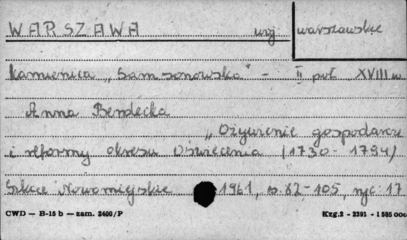 WARSZAWA woj. warszawskie
Kamienica „Samsonowska" - II poł. XVIII w.
Anna Berdecka
„Ożywienie gospodarcze
i reformy okresu Oświecenia (1730-1794)
Szkice Nowomiejskie 1961, s. 62-105, ryc. 17
CWD — B-15 b — zam. 2400/P Kzg.2 - 2391 - 1 585 000